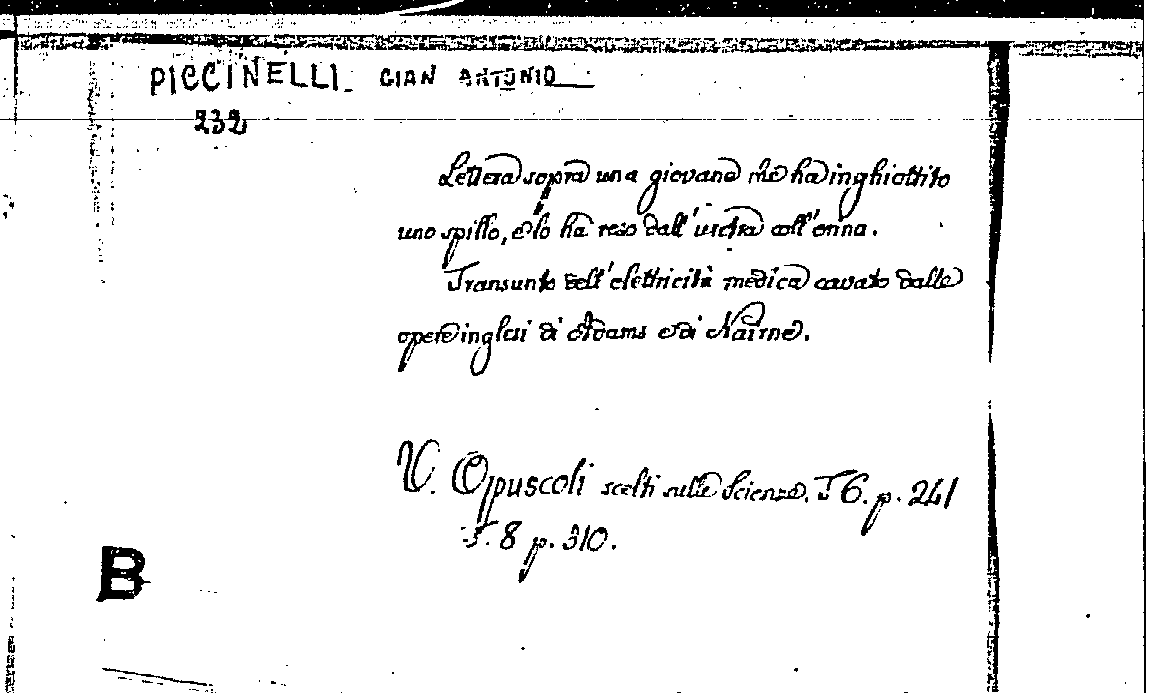 PICCINELLI GIAN ANTONIO
232
Lettera sopra una giovane che ha inghiottito
uno spillo, e lo ha reso dall' uretra coll' orina.
Transunto dell' elettricità medica cavato dalle
opere inglesi di Adams e di Nairne.
V. Opuscoli scelti sulle Scienze. T 6. p. 241
T. 8 p. 310.
B